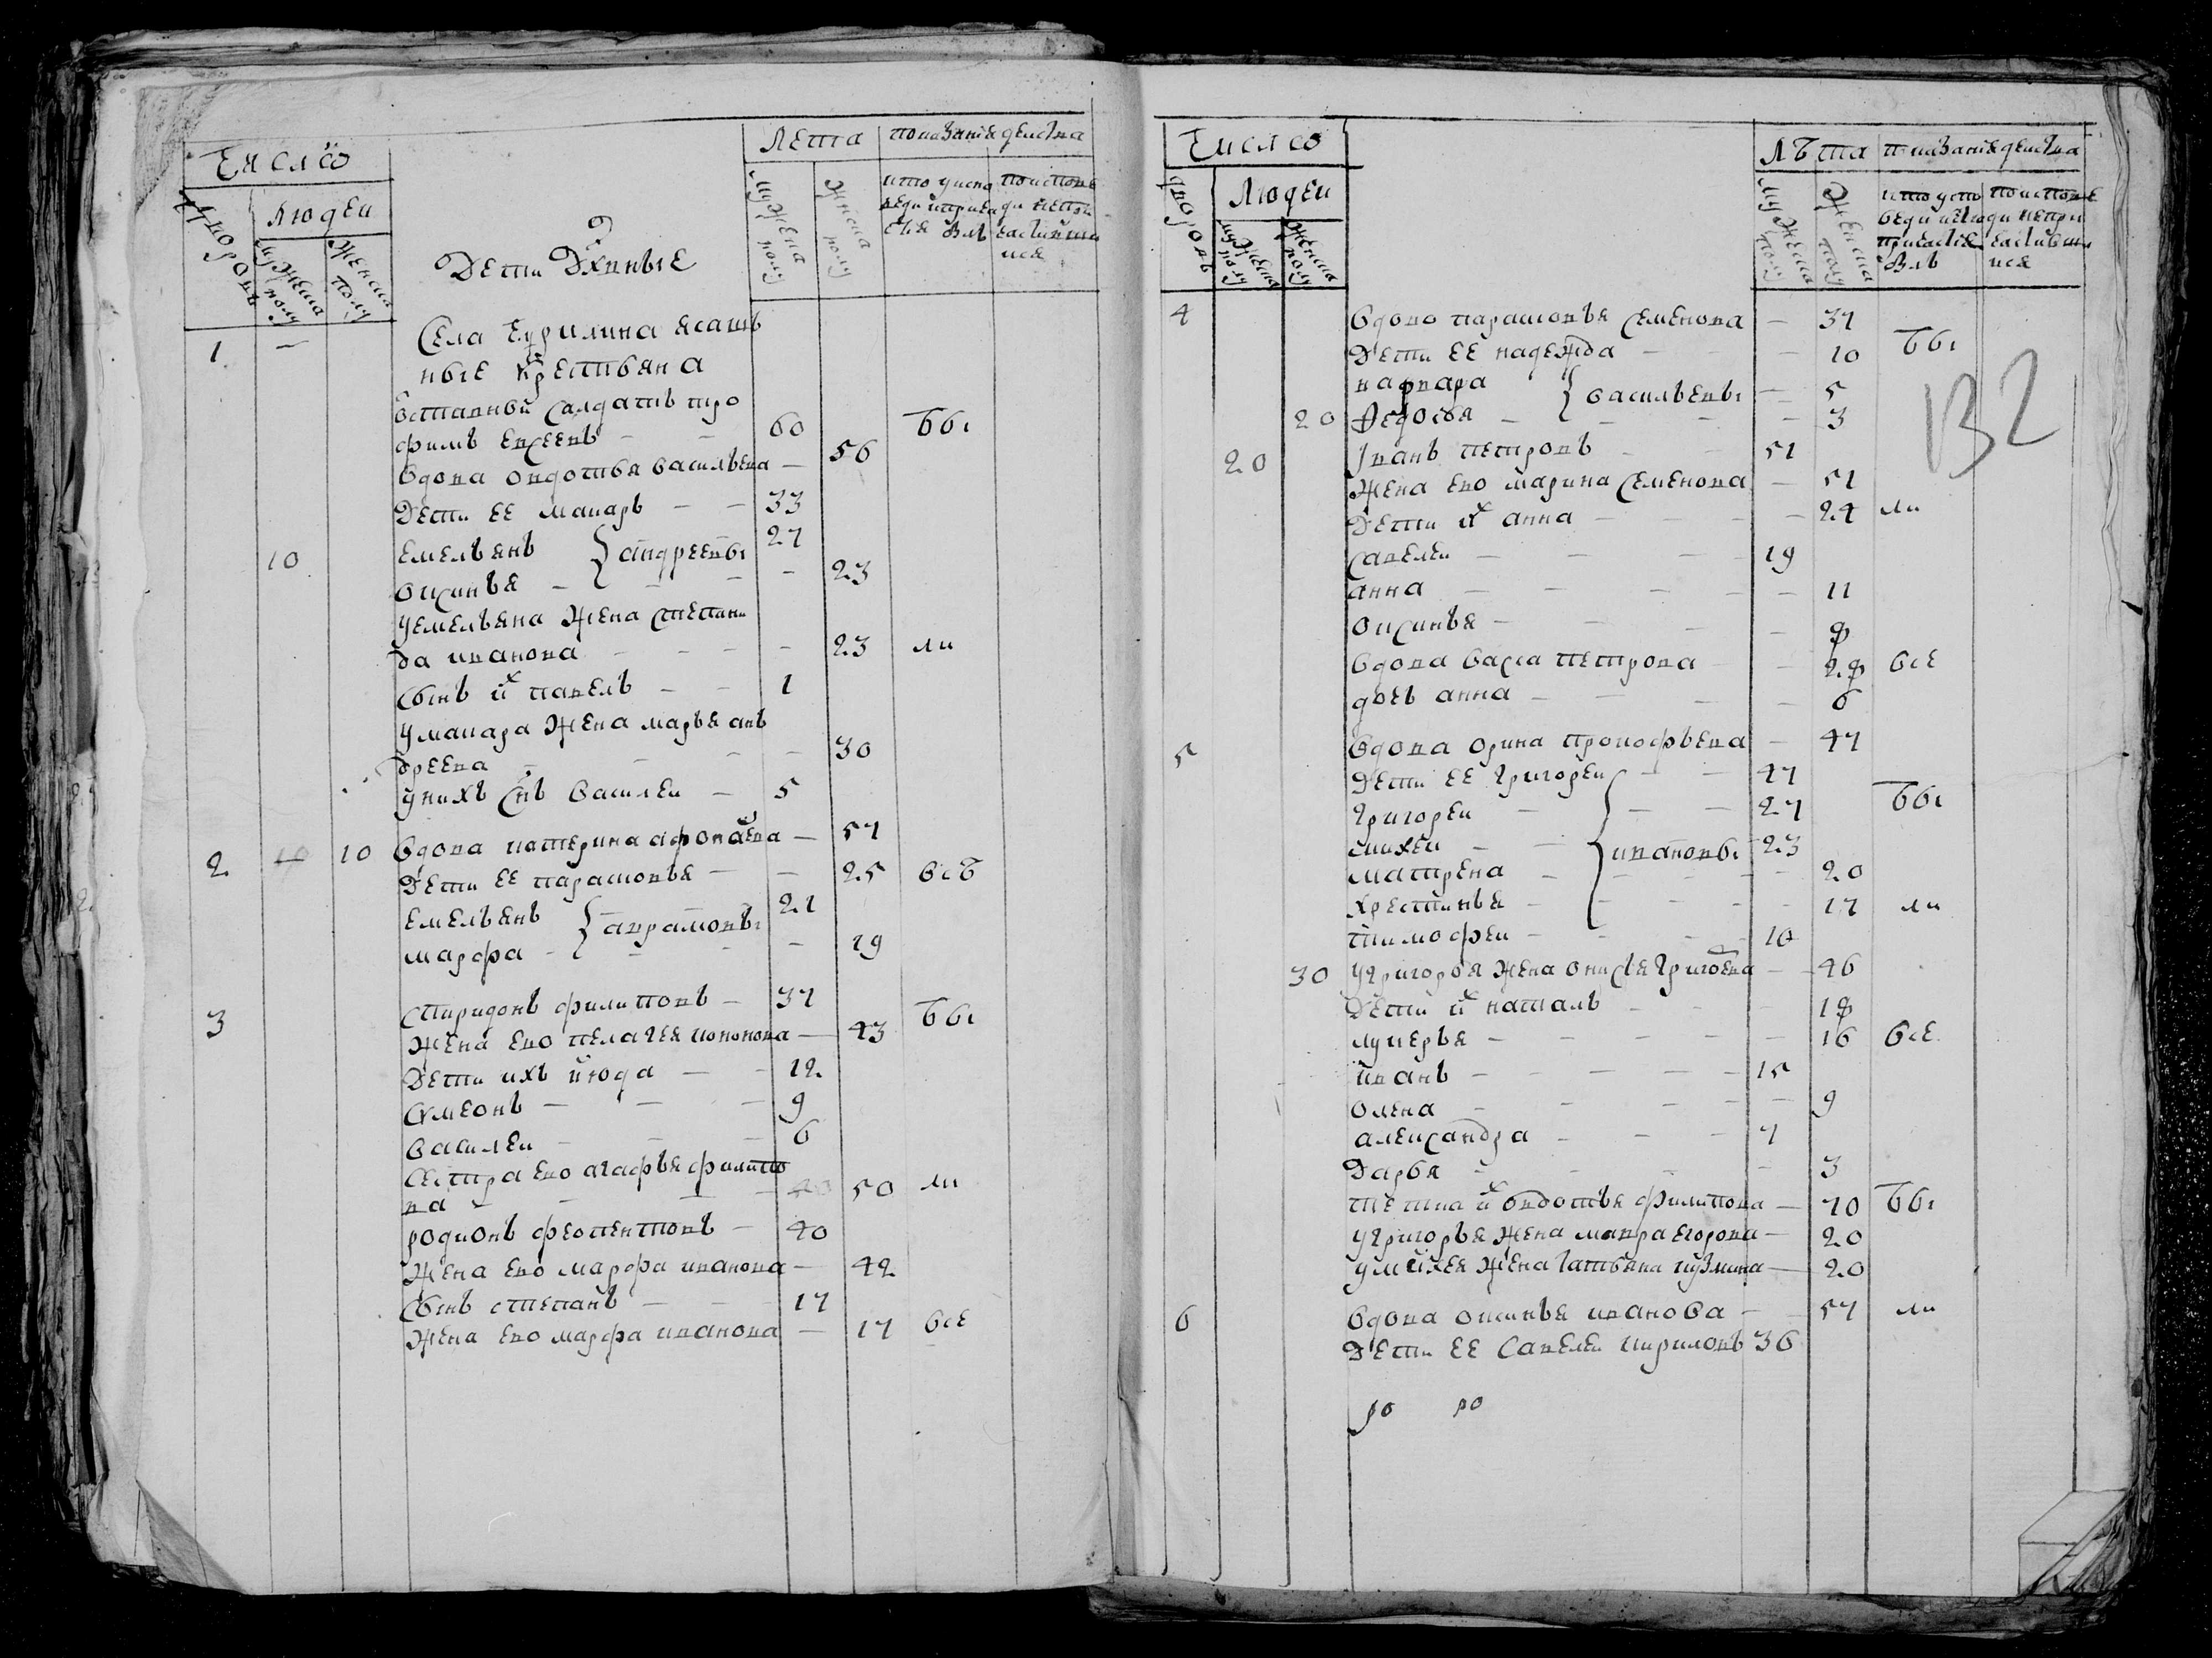 Число
Дворовъ
Людеи
мужеска полу
женска полу
Дети Дхвные
Лета
мужеска полу
женска полу
показание деиства
кто у испо
веди и прича
стия былъ
по испове
ди не при
частивши
ися
1 —
Села Чурилина ясашъ
ные крестьяна
Оставнои салдатъ тро
фимъ евсеевъ — — 60 бы
вдова овдотья васильева — 56
Дети ее макаръ — — 33
10 емельянъ андреевы 27
оксинья — — — 23
у емельяна жена степани
да иванова — — — — 23 ли
сынъ их павелъ — — 1
у макара жена марья анъ
дреева — — — — 30
у нихъ снъ василеи — 5
2 10 10 вдова катерина афонаева — 57
Дети ее парасковья — — 25 всѣ
емельянъ аврамовы 21
марфа — — — 19
3 спиридонъ филиповъ — 37 бы
жена ево пелагея кононова — 43
Дети ихъ июда — — 12
симеонъ — — — 9
василеи — — — 6
сестра ево агафья филипо
ва — — — 50 ли
родионъ феопентовъ — 40
жена ево марфа иванова — 42
сынъ степанъ — — — 17
жена ево марфа иванова — 17 все
Число
Дворовъ
Людеи
мужеска полу
женска полу
Лѣта
мужеска полу
женска полу
показание деиства
кто у испо
веди и
причастия
былъ
по испове
ди не при
частивши
ися
132
4 вдово парасковья семенова — 37
Дети ее надежда — — — 10 бы
варвара васильевы — 5
20 Федосья — — — 3
20 Iванъ петровъ — — 51
жена ево марина семенова — 51
Дети их анна — — — 24 ли
савелеи — — — 19
анна — — — — — 11
оксинья — — — — 9
вдова васса петрова — — 29 все
дочь анна — — — — 6
5 вдова орина прокофьева — 77
Дети ее григореи — — 47
григореи — — — 27 бы
михеи — ивановы 23
матрена — — — — 20
христинья — — — — — 17 ли
тимофеи — — — — 10
30 у григорья жена онисья григоева — — 46
Дети их наталь — — — 19
лукерья — — — — — 16 все
иванъ — — — — — 15
олена — — — — — 9
александра — — — 7
Дарья — — — — 3
тетка их овдотья филипова — 70 бы
у григорья жена мавра егорова — 20
у михея жена татьяна кузмина — 20
6 вдова оксинья иванова — — 57 ли
Дети ее савелеи кириловъ 36
ро ро